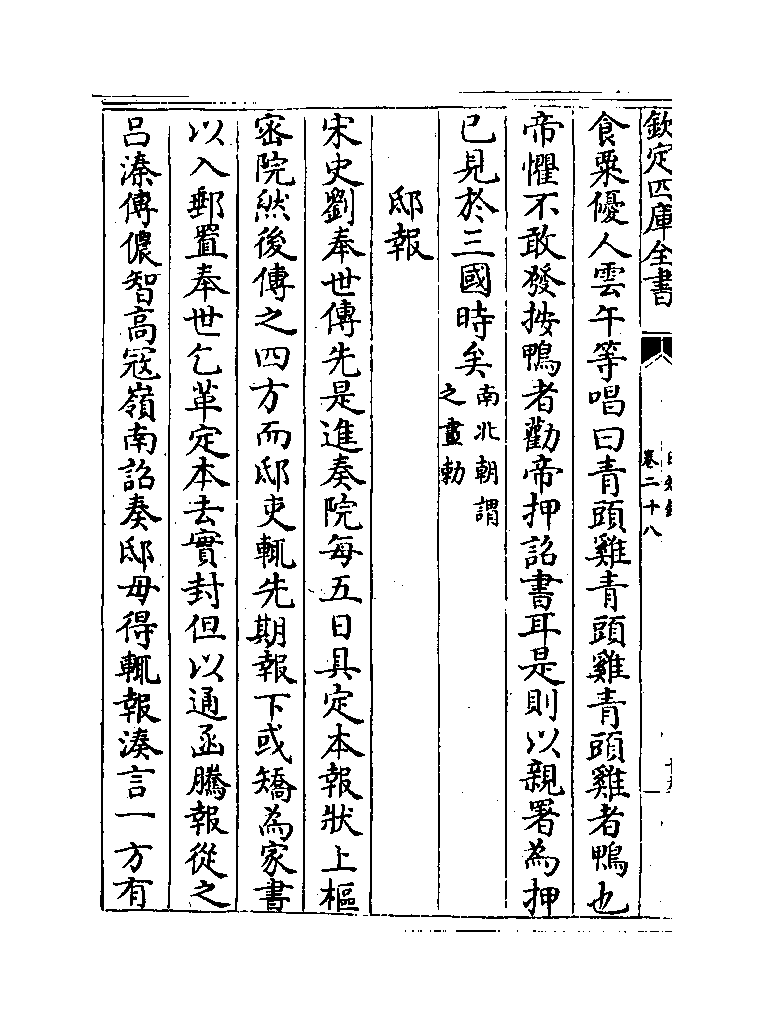 欽定四庫全書
卷二十八
食粟優人雲午等唱曰青頭雞青頭雞青頭雞者鴨也
帝懼不敢發按鴨者勸帝押詔書耳是則以親署為押
已見於三國時矣南北朝謂之畫勅
邸報
宋史劉奉世傳先是進奏院每五日具定本報狀上樞
密院然後傳之四方而邸吏輒先期報下或矯為家書
以入郵置奉世乞革定本去實封但以通函騰報從之
呂溱傳儂智高寇嶺南詔奏邸毋得輒報溱言一方有